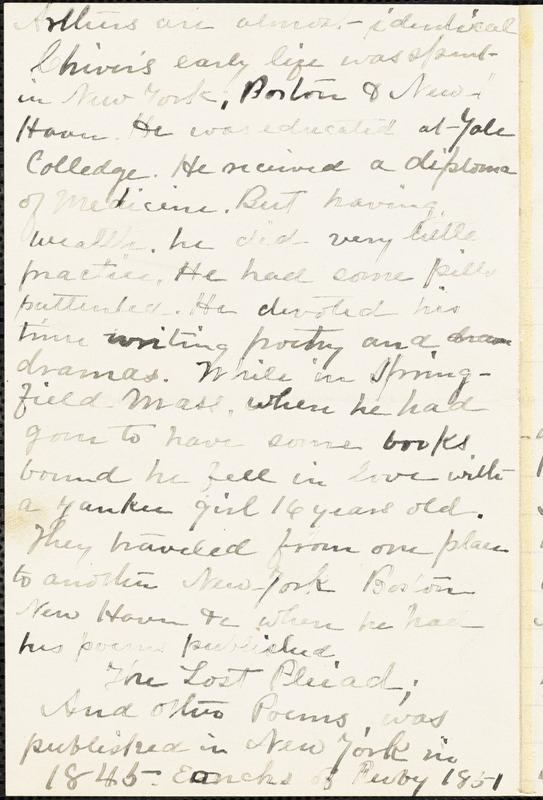 Arthurs are almost identical
Chivers early life was spent
in New York, Boston & New
Haven. He was educated at Yale
Colledge. He received a diploma
of Medicine. But having
wealth. he did very little
practice. He had some pills
pattented. He devoted his
time writing poetry and dram
dramas. While in Spring-
field Mass. when he had
gone to have some books
bound he fell in love with
a Yankee girl 16 years old.
They traveled from one place
to another New York Boston
New Haven &c when he had
his poems published
The Lost Pleiad;
And other Poems, was
published in New York in
1845- Eonchs of Ruby 1851